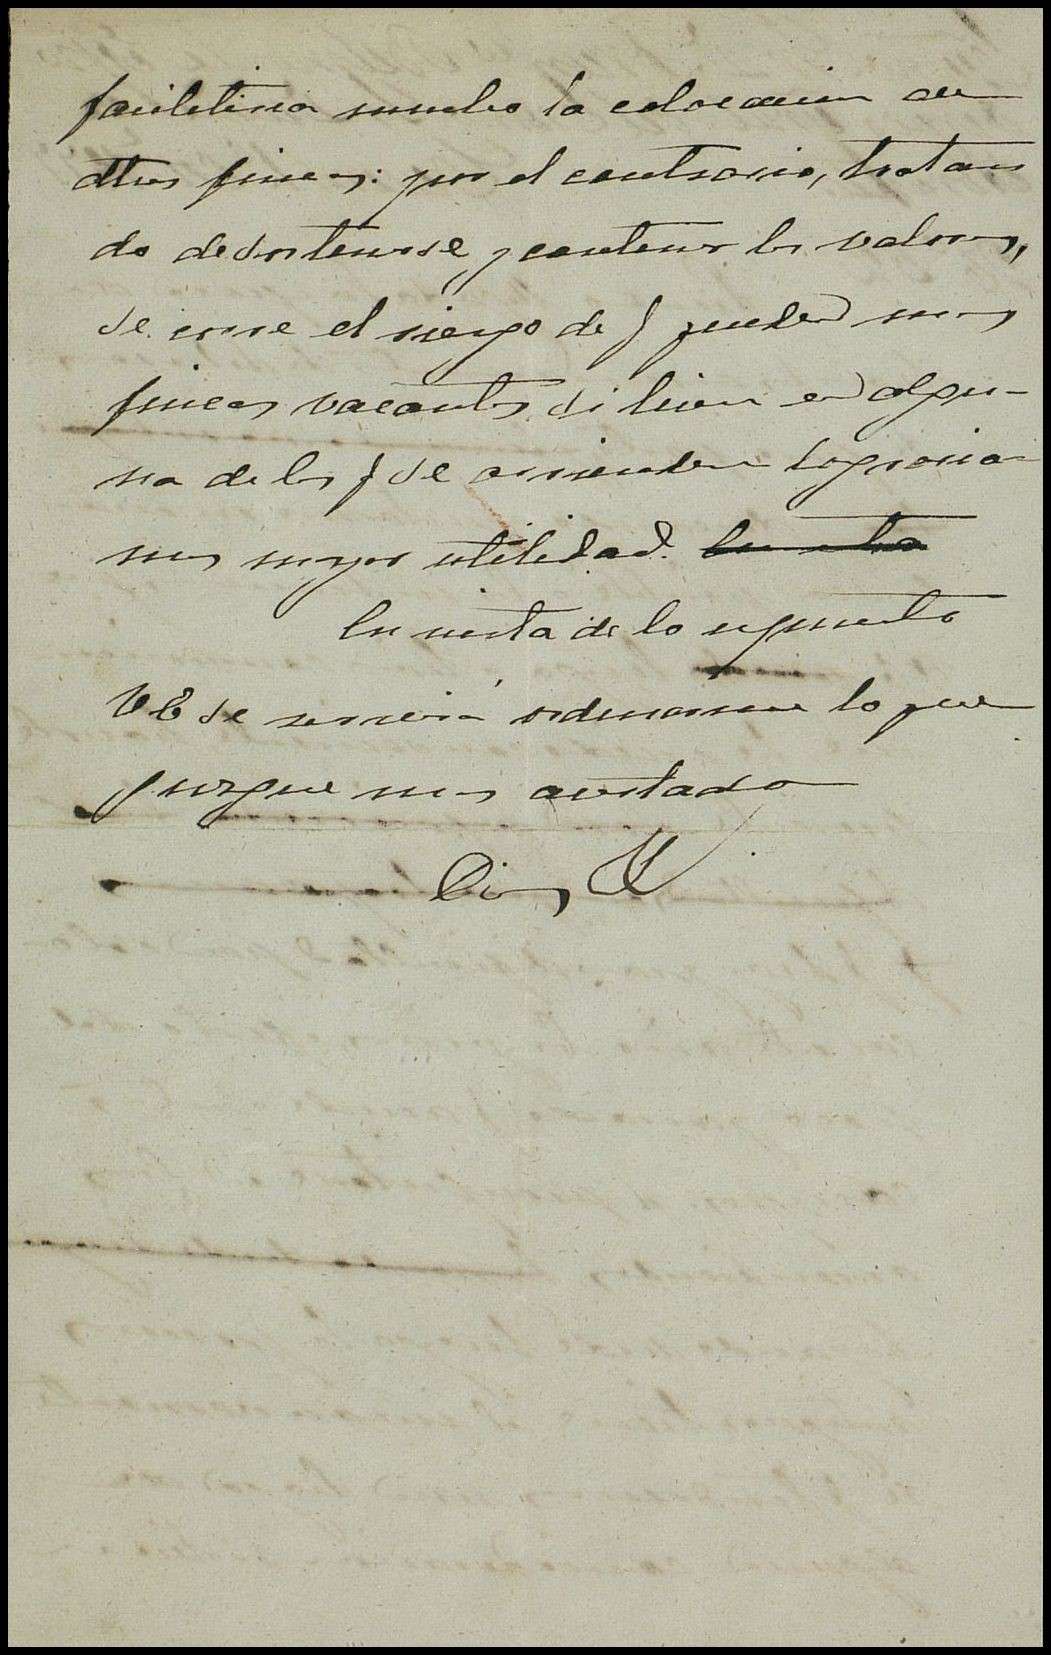 facilitiria mucho la colocacion de
dhas fincas: por el contrario, tratan
do de sostenerse y contener los valores,
se corre el riesgo de q queden mas
fincas vacantes, si bien en algu-
na de las q se arrienden lograria
mos mayor utilidad.
En vista de lo espuesto
VE se servirá ordenarme lo que
juzgue mas acertado
Dios &